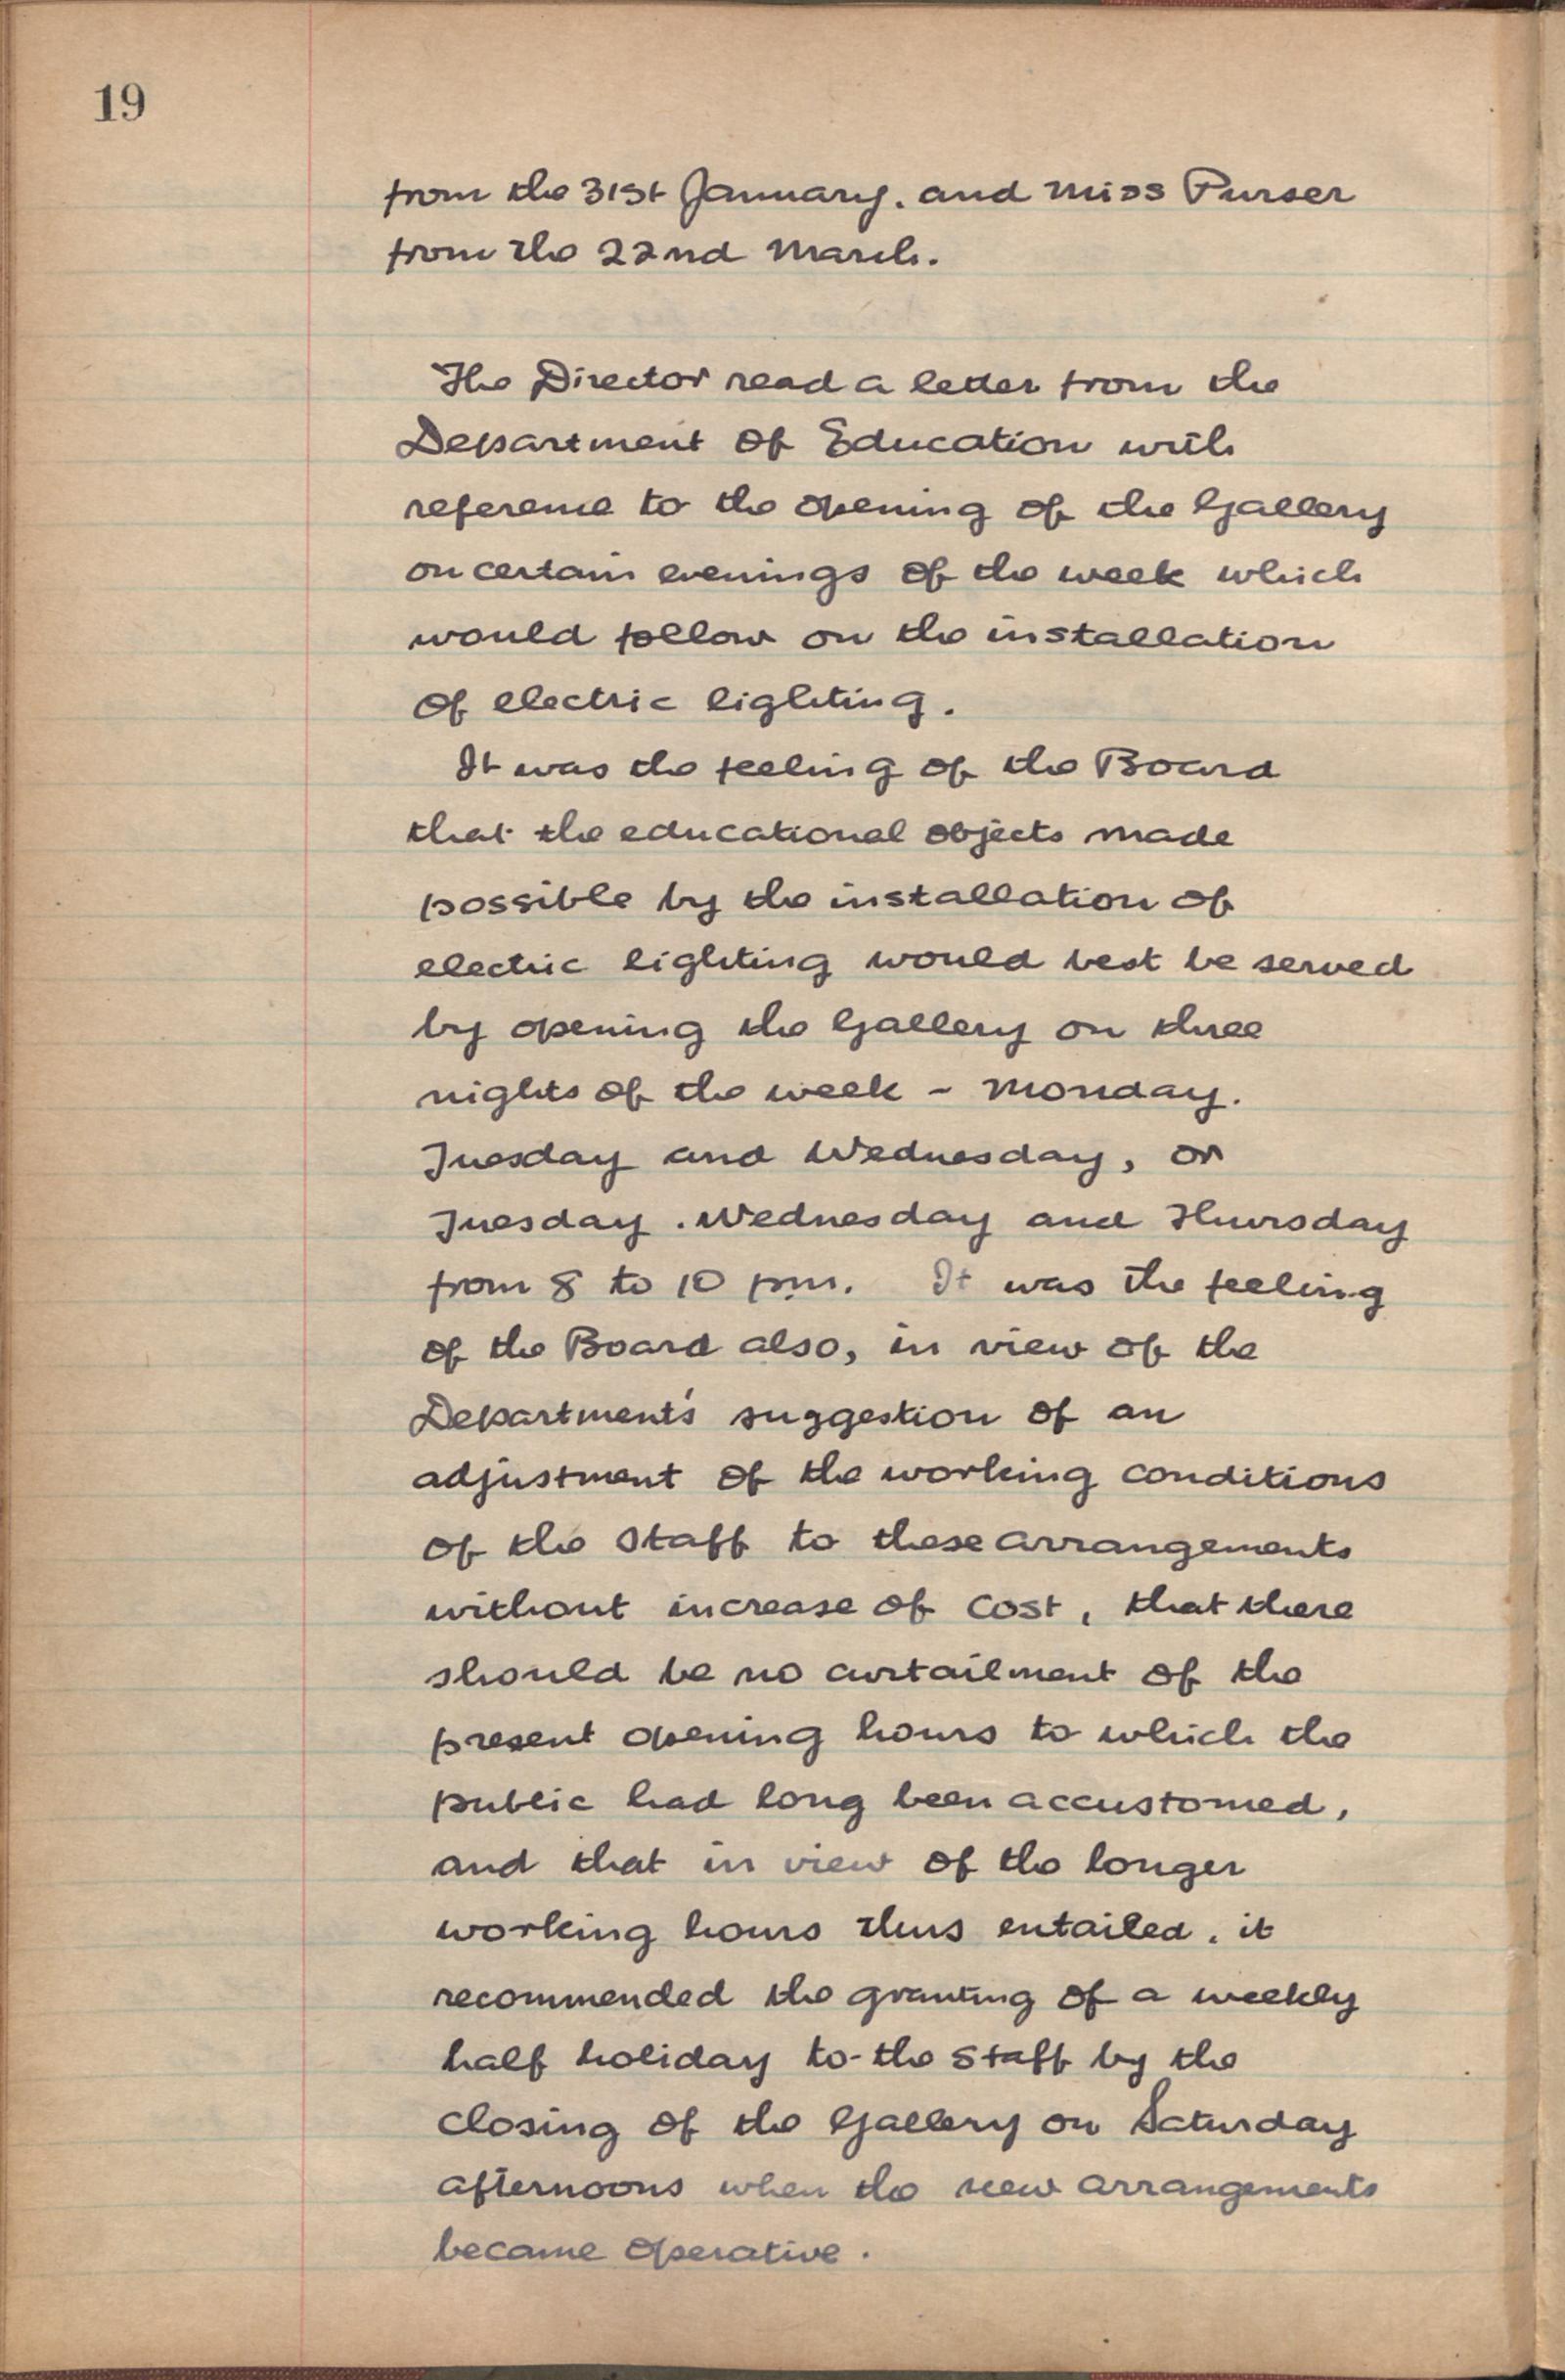 19
from the 31st January. and Miss Purser
from the 22nd March.
The Director read a letter from the
Department of Education with
reference to the opening of the Gallery
on certain evenings of the week which
would follow on the installation
of electric lighting.
It was the feeling of the Board
that the educational objects made
possible by the installation of
electric lighting would best be served
by opening the Gallery on three
nights of the week - Monday.
Tuesday and Wednesday, or
Tuesday. Wednesday and Thursday
from 8 to 10 p.m. It was the feeling
of the Board also, in view of the
Department's suggestion of an
adjustment of the working conditions
of the Staff to these arrangements
without increase of cost, that there
should be no curtailment of the
present opening hours to which the
public had long been accustomed,
and that in view of the longer
working hours thus entailed, it
recommended the granting of a weekly
half holiday to the Staff by the
closing of the Gallery on Saturday
afternoons when the new arrangements
became operative.